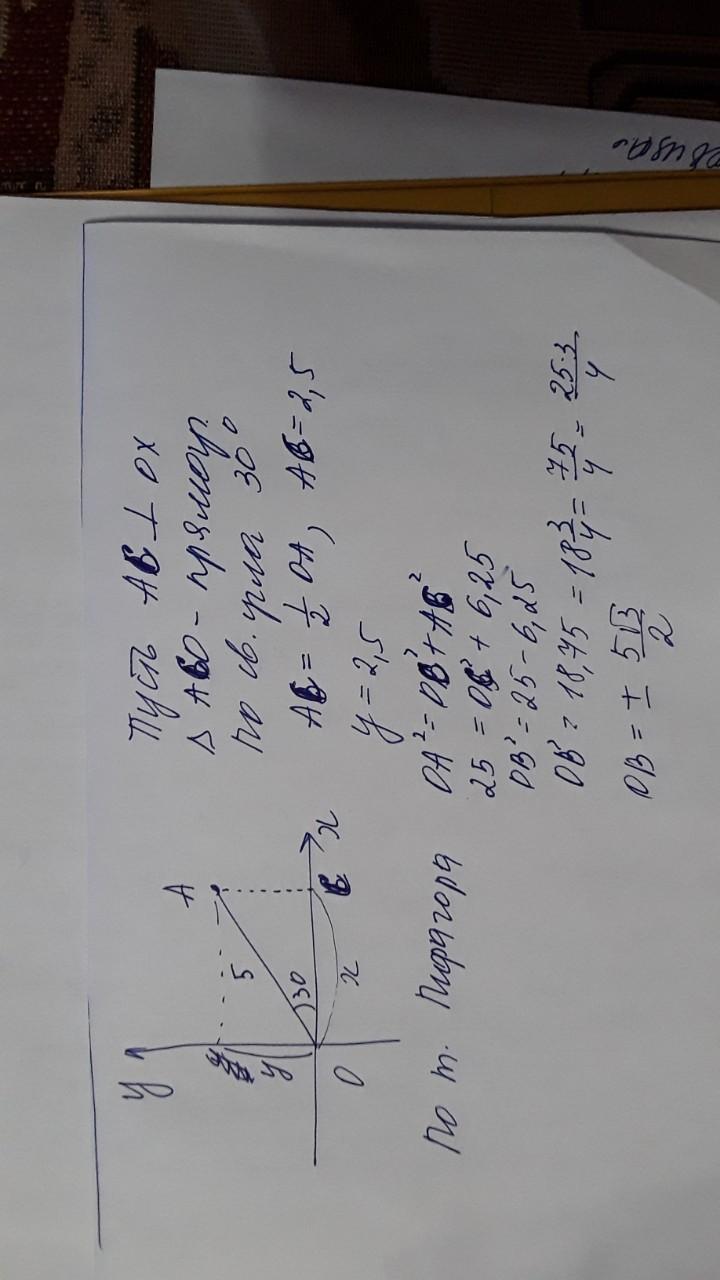 Пусть AB ⊥ OX
Δ ABO - прямоуг.
по св. угла 30°
AB = 1/2 OA, AB = 2,5
y = 2,5
y
A
5
y
30
O
x
B
x
По т. Пифагора
OA² = OB² + AB²
25 = OB² + 6,25
OB² = 25 - 6,25
OB² = 18,75 = 18 3/4 = 75/4 = 25·3/4
OB = ± 5√3/2